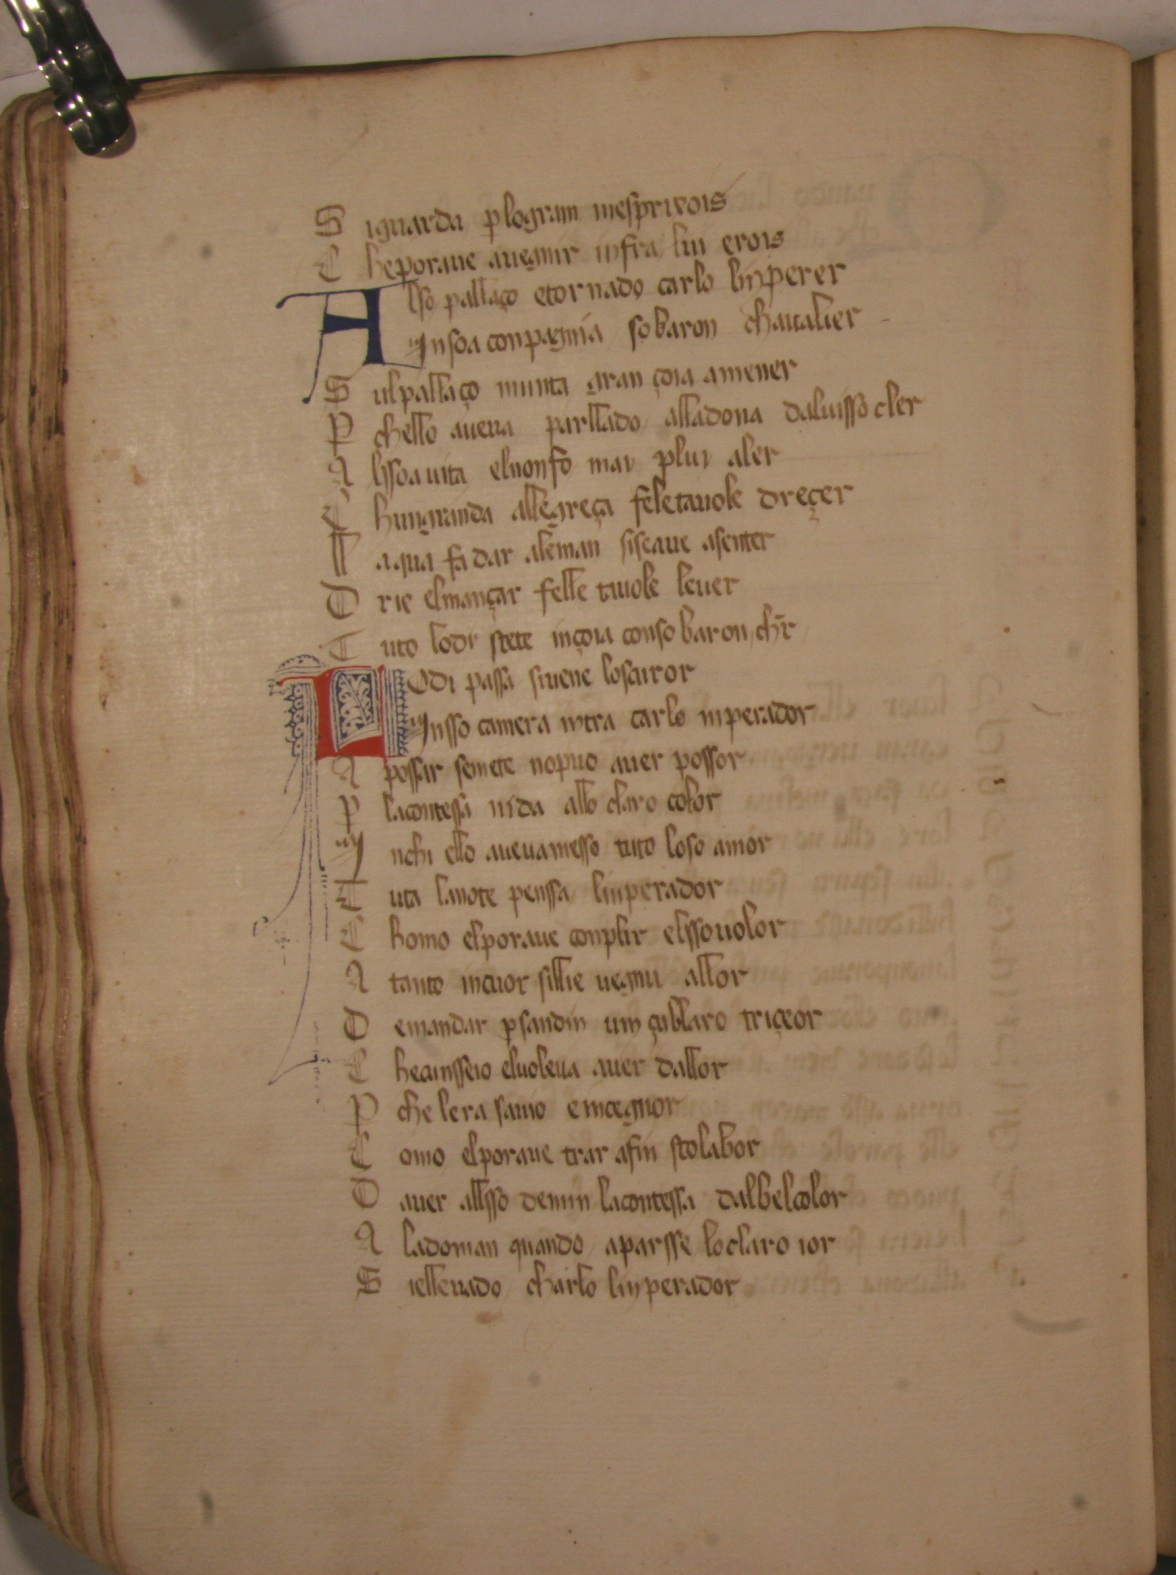 S iguarda p logram mesprixois
C heporave avegnir infra lui erois
Also pallaço etornado carlo linperer
Insoa conpagnia so baron chavalier
S ulpallaço munta gran çoia amener
P chello aveva parllado alladona daluisso cler
A lissoa vita elnonfo mai plui aler
C hungranda allegreça feletavole dreçer
L aqua fa dar aleman siseave asenter
D rie elmançar felle tavole lever
T uto lodi stete inçoia conso baron chr
Lodi passa sivene loscuror
Insso camera intra carlo inperador
A possar semete nopuo aver possor
P lacontessa nida allo claro color
In chi ello avevamesso tuto loso amor
T uta lanote penssa linperador
C homo elporave conplir elissovolor
A tanto incuor sillie vegnu allor
D emandar p sandin um çubllaro triçeor
C hecunsseio elvoleva aver dallor
P che lera savio e inçegnor
C omo elporave trar afin stolabor
D aver allsso demin lacontessa dalbelcolor
A ladoman quando aparsse loclaro ior
S iellevado charlo linperador